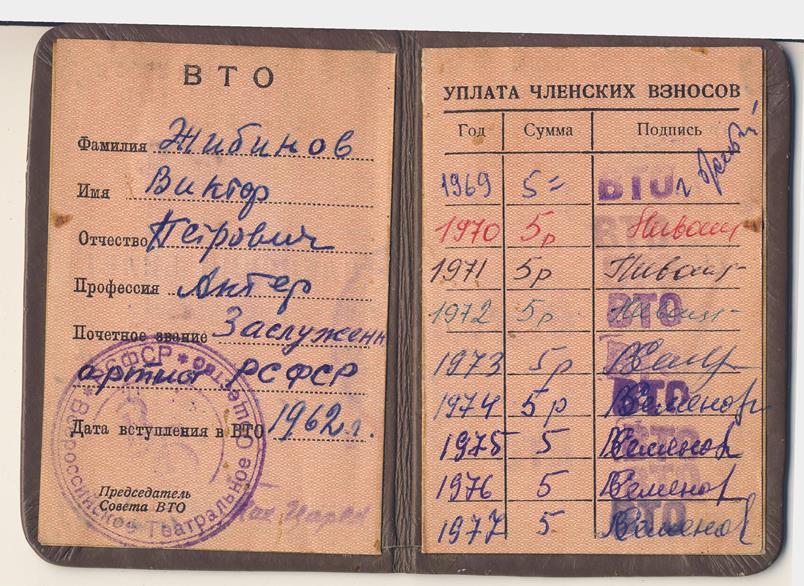 ВТО
Фамилия Жибинов
Имя Виктор
Отчество Петрович
Профессия Актер
Почетное звание Заслуженн
артист РСФСР
Дата вступления в ВТО 1962 г.
Председатель
Совета ВТО
Всероссийское Театральное Общество * РСФСР *
УПЛАТА ЧЛЕНСКИХ ВЗНОСОВ
Год Сумма Подпись
1969 5= ВТО
1970 5р ВТО
1971 5р
1972 5р ВТО
1973 5р
1974 5р ВТО
1975 5 ВТО
1976 5
1977 5 ВТО